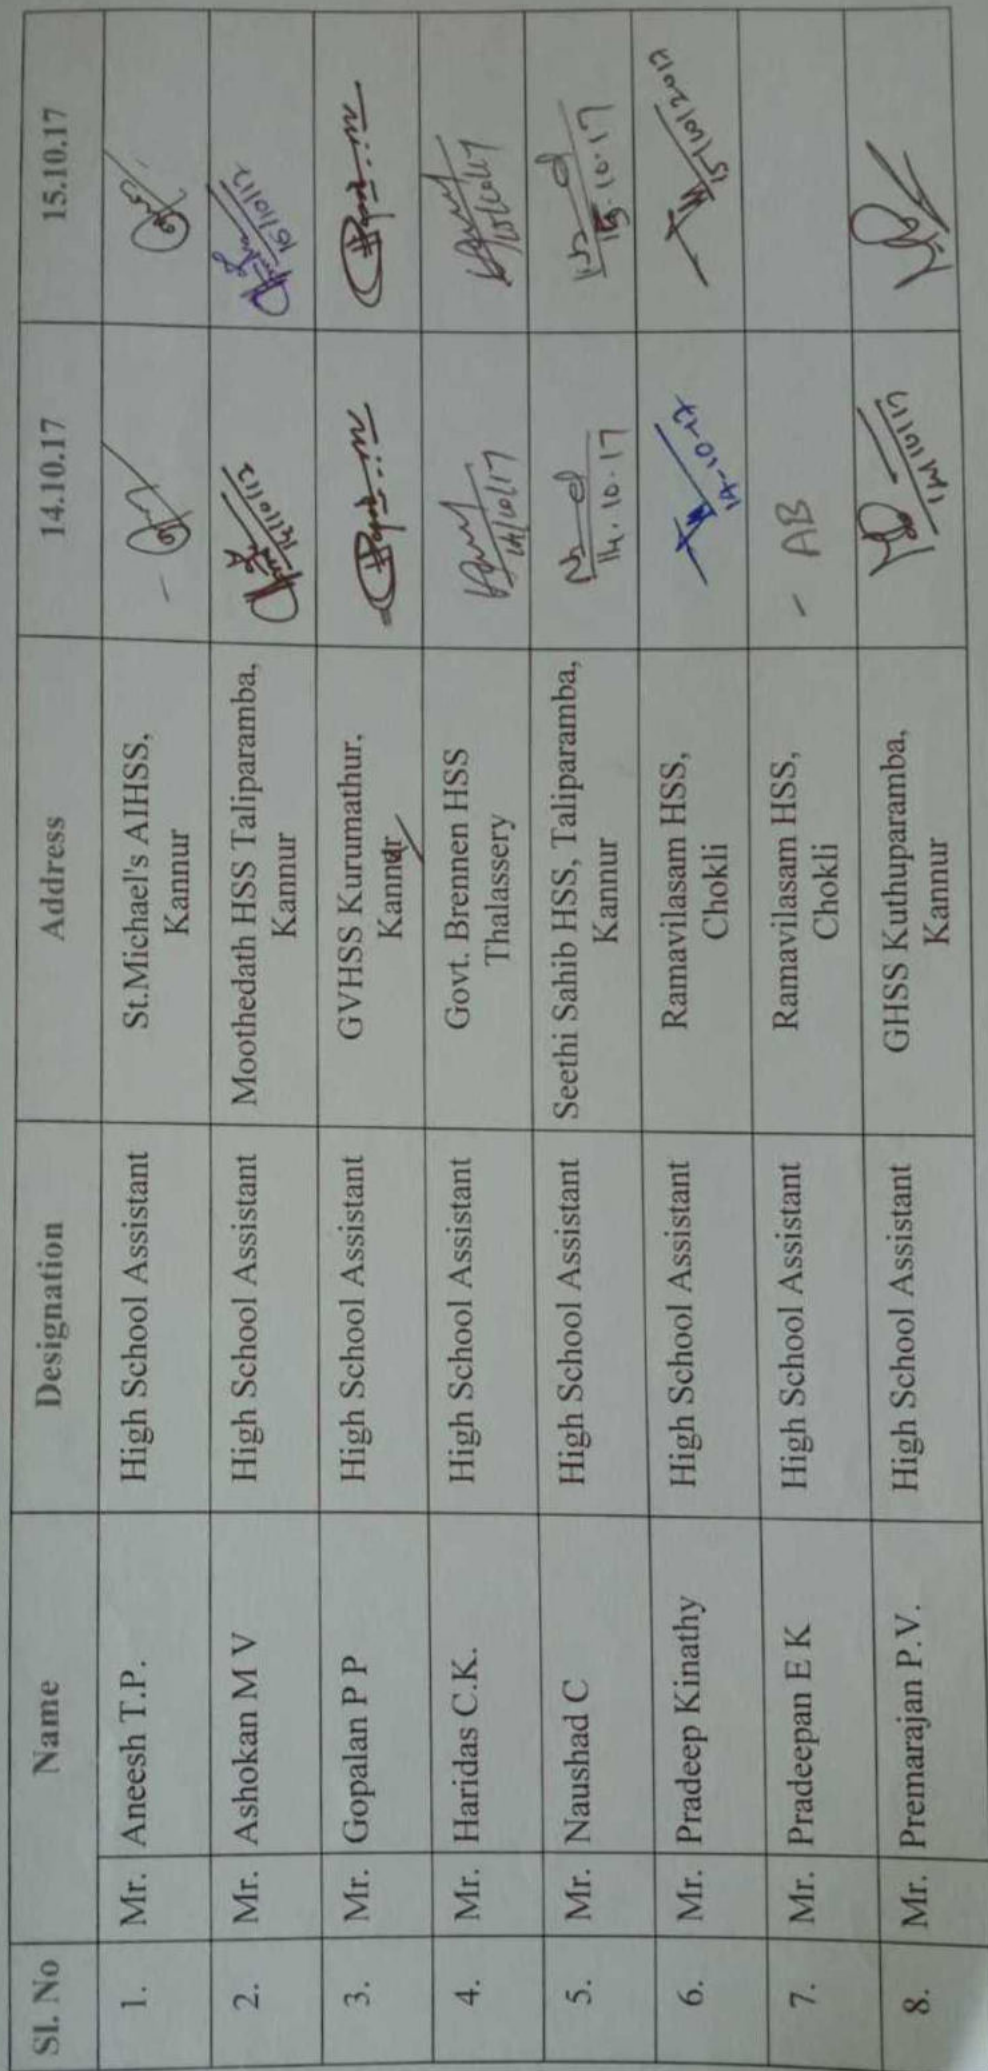 Sl. No Name Designation Address 14.10.17 15.10.17
1. Mr. Aneesh T.P. High School Assistant St.Michael's AIHSS,
Kannur
2. Mr. Ashokan M V High School Assistant Moothedath HSS Taliparamba,
Kannur
14/10/17 15/10/17
3. Mr. Gopalan P P High School Assistant GVHSS Kurumathur,
Kannur
4. Mr. Haridas C.K. High School Assistant Govt. Brennen HSS
Thalassery
14/10/17 15/10/17
5. Mr. Naushad C High School Assistant Seethi Sahib HSS, Taliparamba,
Kannur
14.10.17 15.10.17
6. Mr. Pradeep Kinathy High School Assistant Ramavilasam HSS,
Chokli
14-10-17 15/10/2017
7. Mr. Pradeepan E K High School Assistant Ramavilasam HSS,
Chokli
- AB
8. Mr. Premarajan P.V. High School Assistant GHSS Kuthuparamba,
Kannur
14/10/17